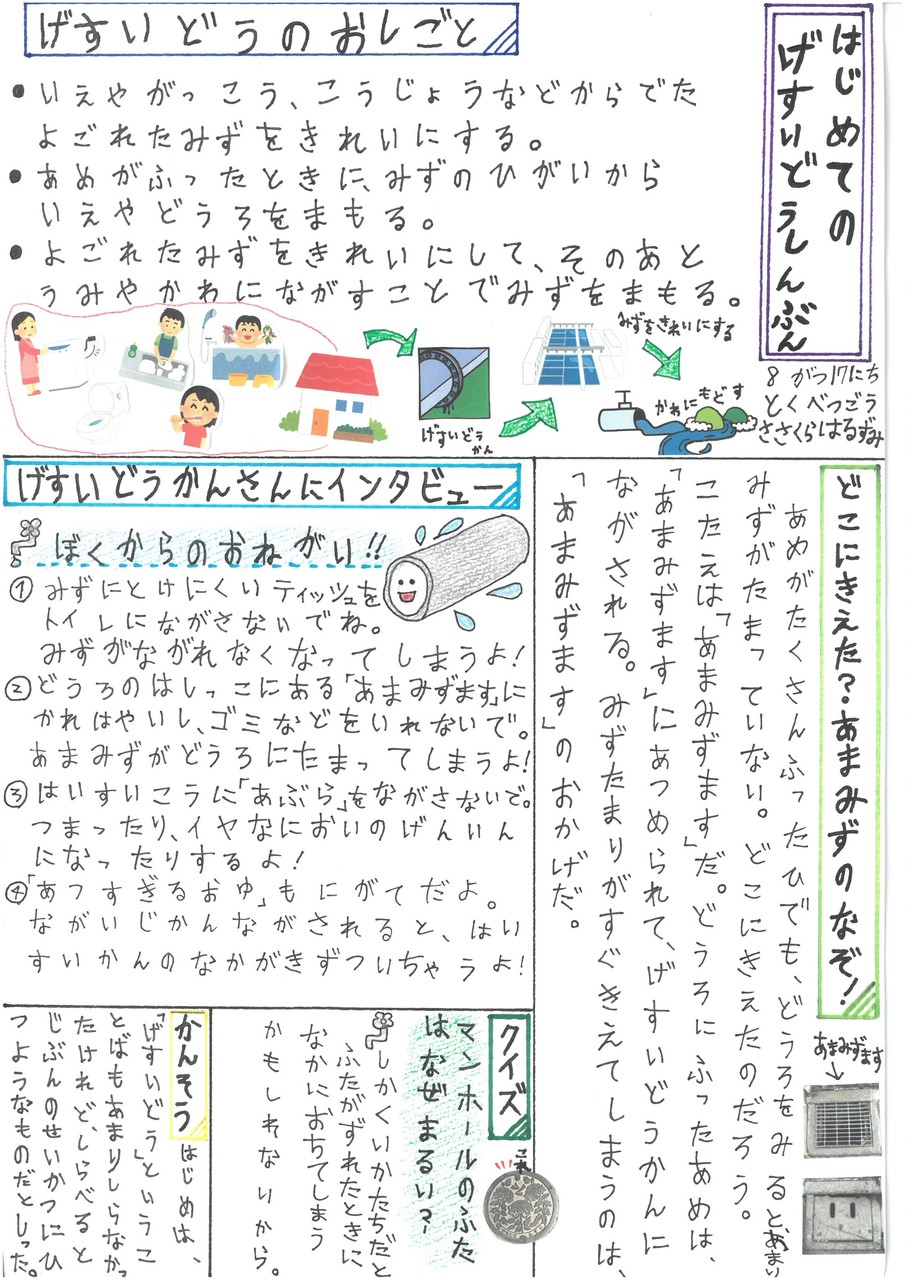 はじめての
げすいどうしんぶん
8がつ17にち
とくべつごう
ささくらはるずみ
げすいどうのおしごと
●いえやがっこう、こうじょうなどからでた
よごれたみずをきれいにする。
●あめがふったときに、みずのひがいから
いえやどうろをまもる。
●よごれたみずをきれいにして、そのあと
うみやかわにながすことでみずをまもる。
げすいどう
かん
みずをきれいにする
かわにもどす
どこにきえた?あまみずのなぞ!
あまみずます
あめがたくさんふったひでも、どうろをみると、あまい
みずがたまっていない。どこにきえたのだろう。
こたえは「あまみずます」だ。どうろにふったあめは、
「あまみずます」にあつめられて、げすいどうかんに
ながされる。みずたまりがすぐきえてしまうのは、
「あまみずます」のおかげだ。
げすいどうかんさんにインタビュー
ぼくからのおねがい!!
①みずにとけにくいティッシュを
トイレにながさないでね。
みずがながれなくなってしまうよ!
②どうろのはしっこにある「あまみずます」に
かれはやいし、ゴミなどをいれないで。
あまみずがどうろにたまってしまうよ!
③はいすいこうに「あぶら」をながさないで。
つまったり、イヤなにおいのげんいん
になったりするよ!
④「あつすぎるおゆ」もにがてだよ。
ながいじかんながされると、はい
すいかんのなかがきずついちゃうよ!
クイズ
これ
マンホールのふた
はなぜまるい?
しかくいかたちだと
ふたがずれたときに
なかにおちてしまう
かもしれないから。
かんそう
はじめは、
「げすいどう」というこ
とばもあまりしらなかっ
たけれど、しらべると
じぶんのせいかつにひ
つようなものだとしった。